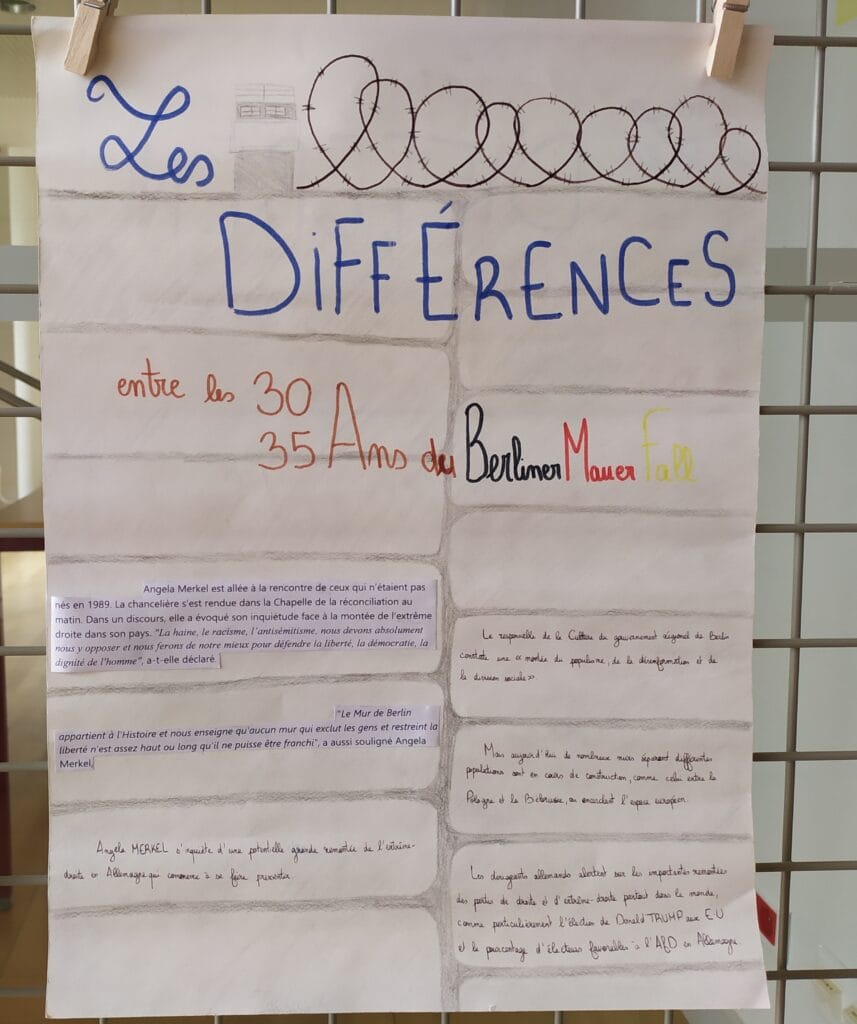 Les
DiFFÉRENCES
entre les 30
35 Ans du Berliner Mauer Fall
Angela Merkel est allée à la rencontre de ceux qui n'étaient pas
nés en 1989. La chancelière s'est rendue dans la Chapelle de la réconciliation au
matin. Dans un discours, elle a évoqué son inquiétude face à la montée de l'extrême
droite dans son pays. "La haine, le racisme, l'antisémitisme, nous devons absolument
nous y opposer et nous ferons de notre mieux pour défendre la liberté, la démocratie, la
dignité de l'homme", a-t-elle déclaré.
"Le Mur de Berlin
appartient à l'Histoire et nous enseigne qu'aucun mur qui exclut les gens et restreint la
liberté n'est assez haut ou long qu'il ne puisse être franchi", a aussi souligné Angela
Merkel.
Angela MERKEL s'inquiète d'une potentielle grande remontée de l'extrême-
droite en Allemagne qui commence à se faire
Le responsable de la Culture du gouvernement régional de Berlin
constate une « montée du populisme, de la désinformation et de
la division sociale »
Mais aujourd'hui de nombreux murs séparant différentes
populations sont en cours de construction, comme celui entre la
Pologne et la Biélorussie, en encerclant l'espace européen.
Les dirigeants allemands alertent sur les importantes remontées
des partis de droite et d'extrême-droite partout dans le monde,
comme particulièrement l'élection de Donald TRUMP aux EU
et le pourcentage d'électeurs favorables à l'AFD en Allemagne.